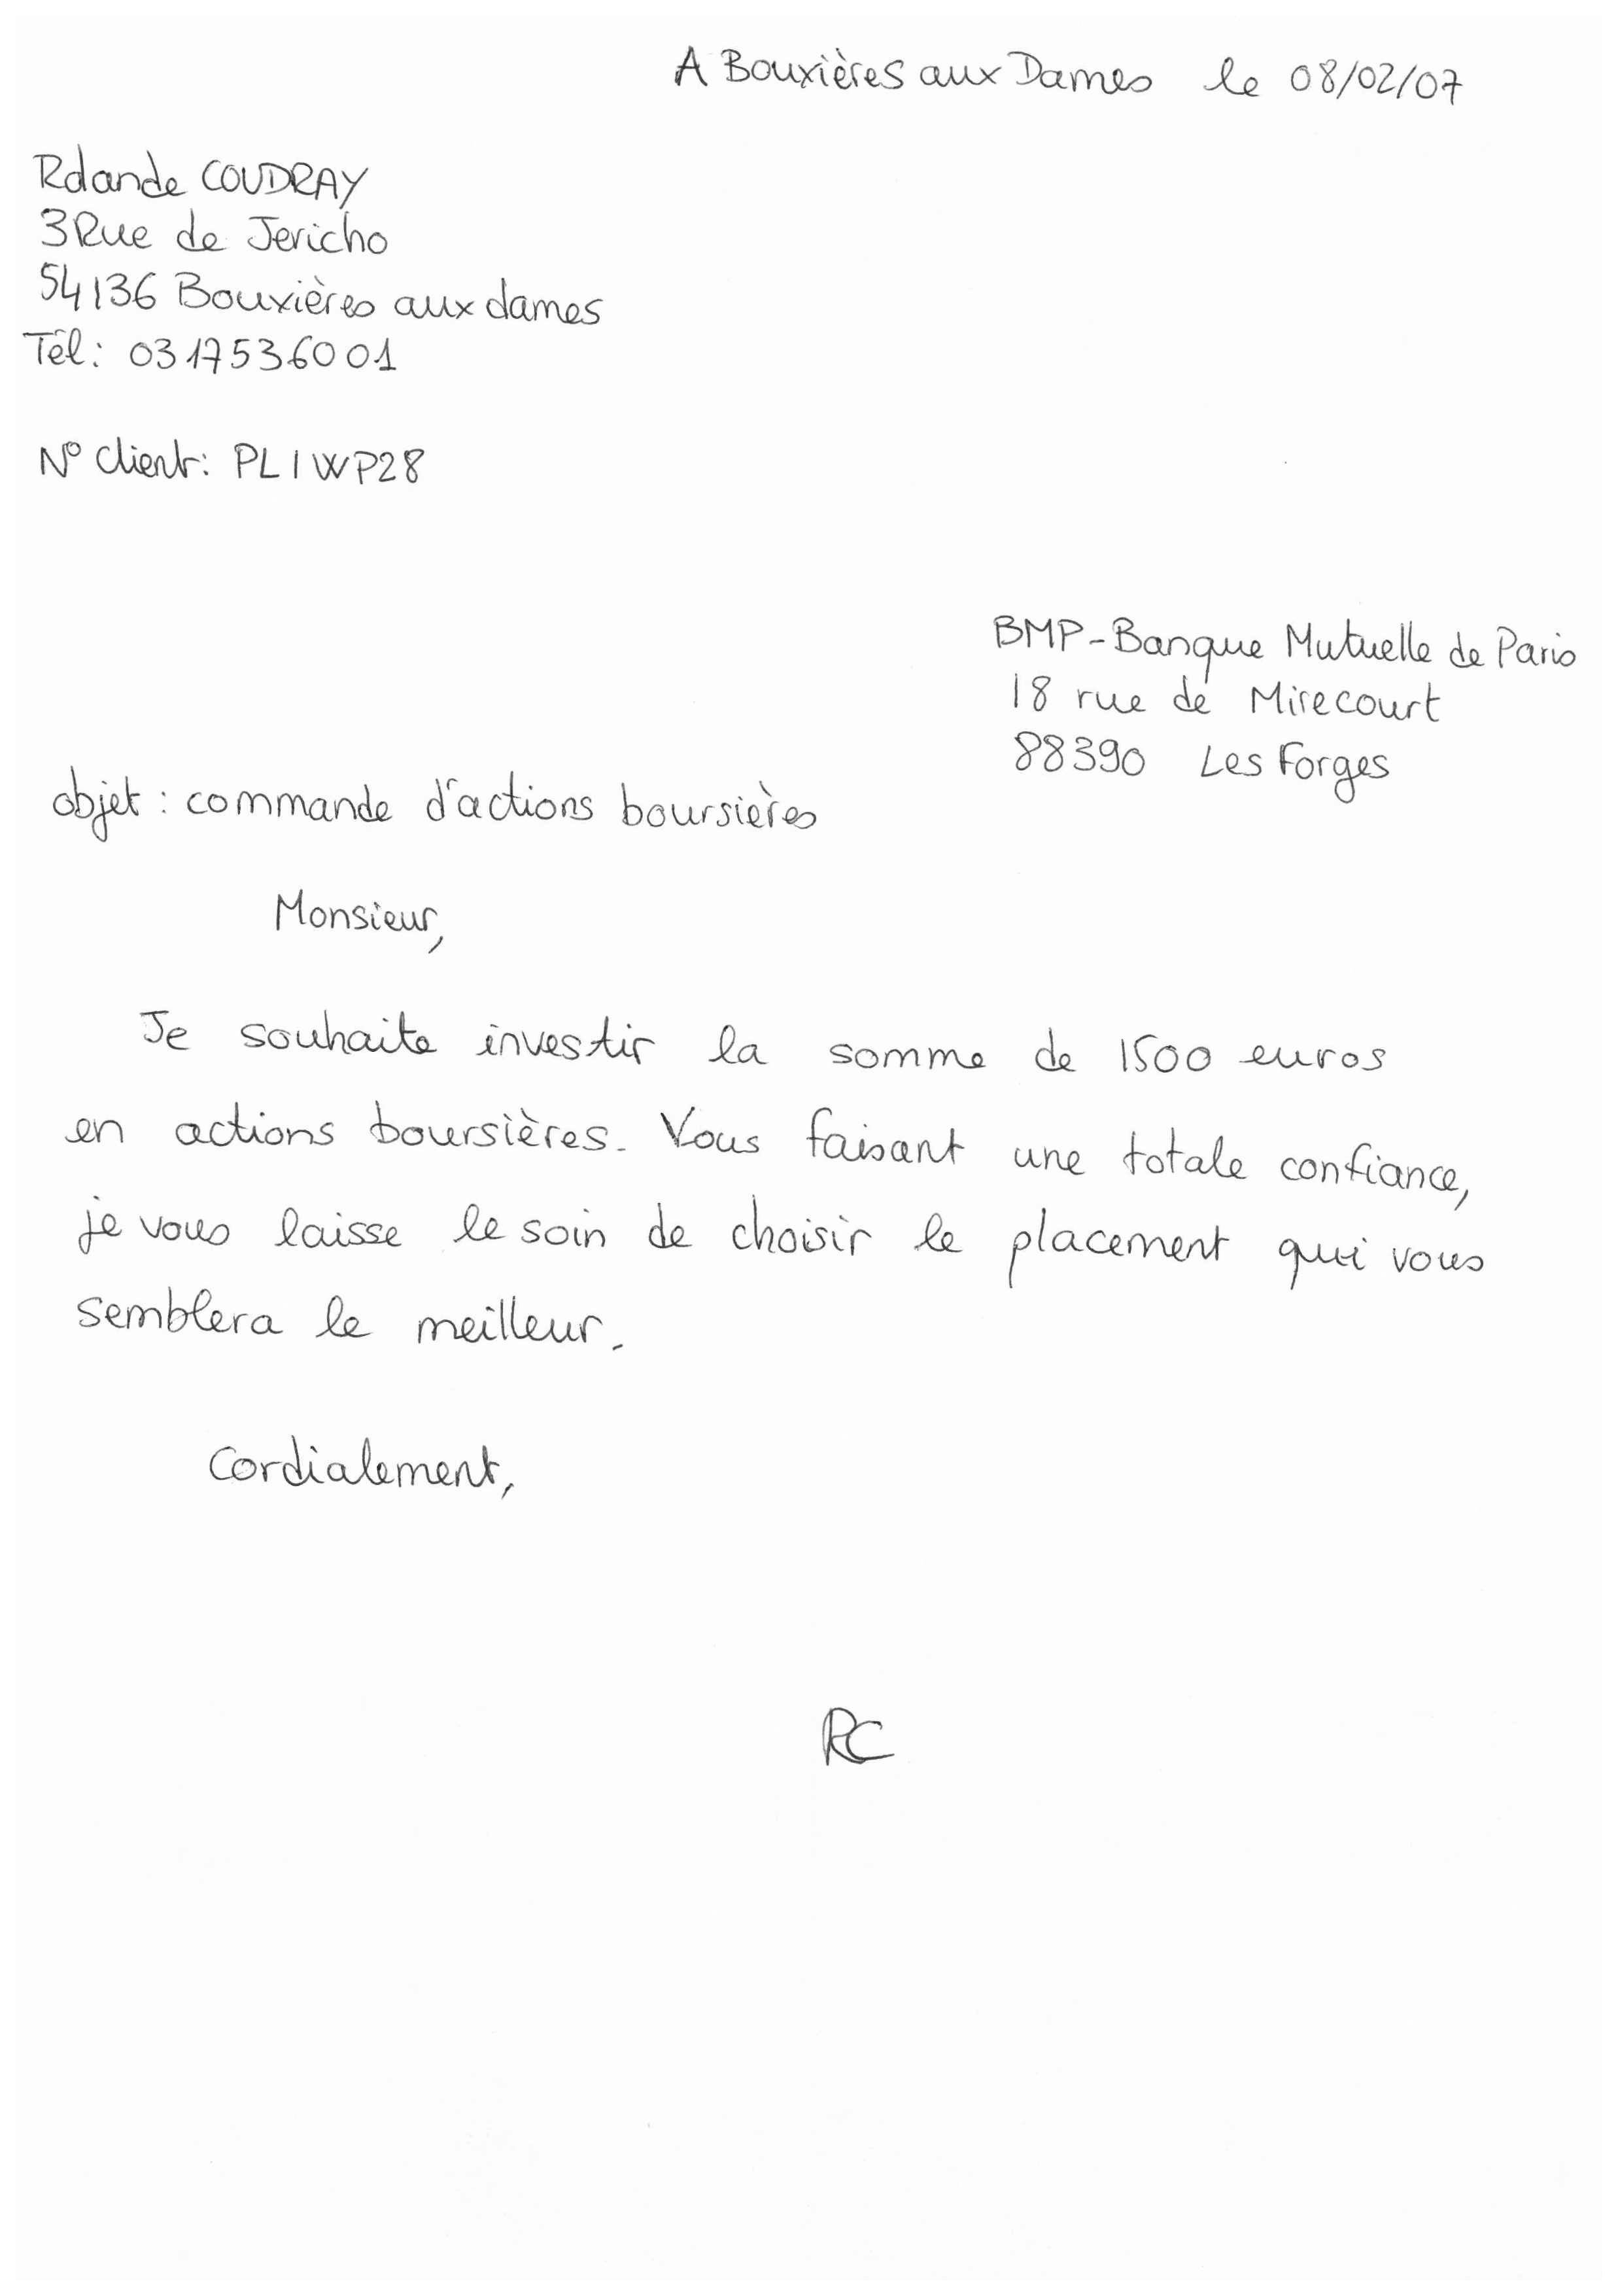 A Bouxières aux Dames le 08/02/07
Rolande COUDRAY
3 Rue de Jericho
54136 Bouxières aux dames
Tél: 0317536001
N° Client: PLIWP28
BMP-Banque Mutuelle de Paris
18 rue de Mirecourt
88390 Les Forges
objet : commande d'actions boursières
Monsieur,
Je souhaite investir la somme de 1500 euros
en actions boursières. Vous faisant une totale confiance,
je vous laisse le soin de choisir le placement qui vous
semblera le meilleur.
Cordialement,
RC